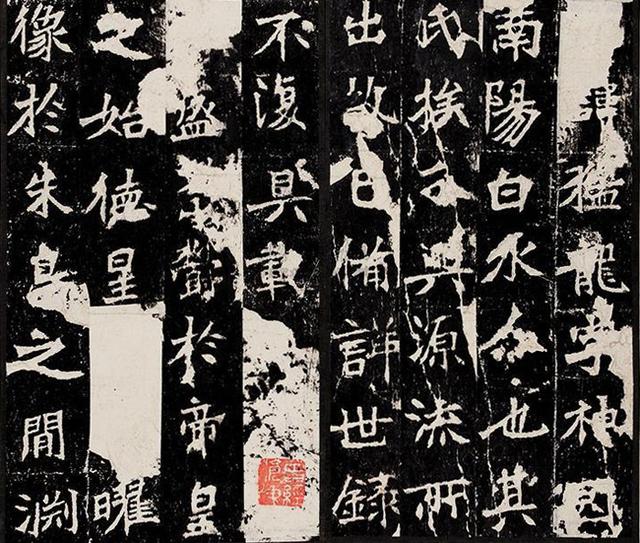 諱猛龍字神冏
南陽白水人也其
氏族分興源流所
出故已備詳世錄
不復具載
盛鬱於帝皇
之始徳星曜
像於朱鳥之閒淵